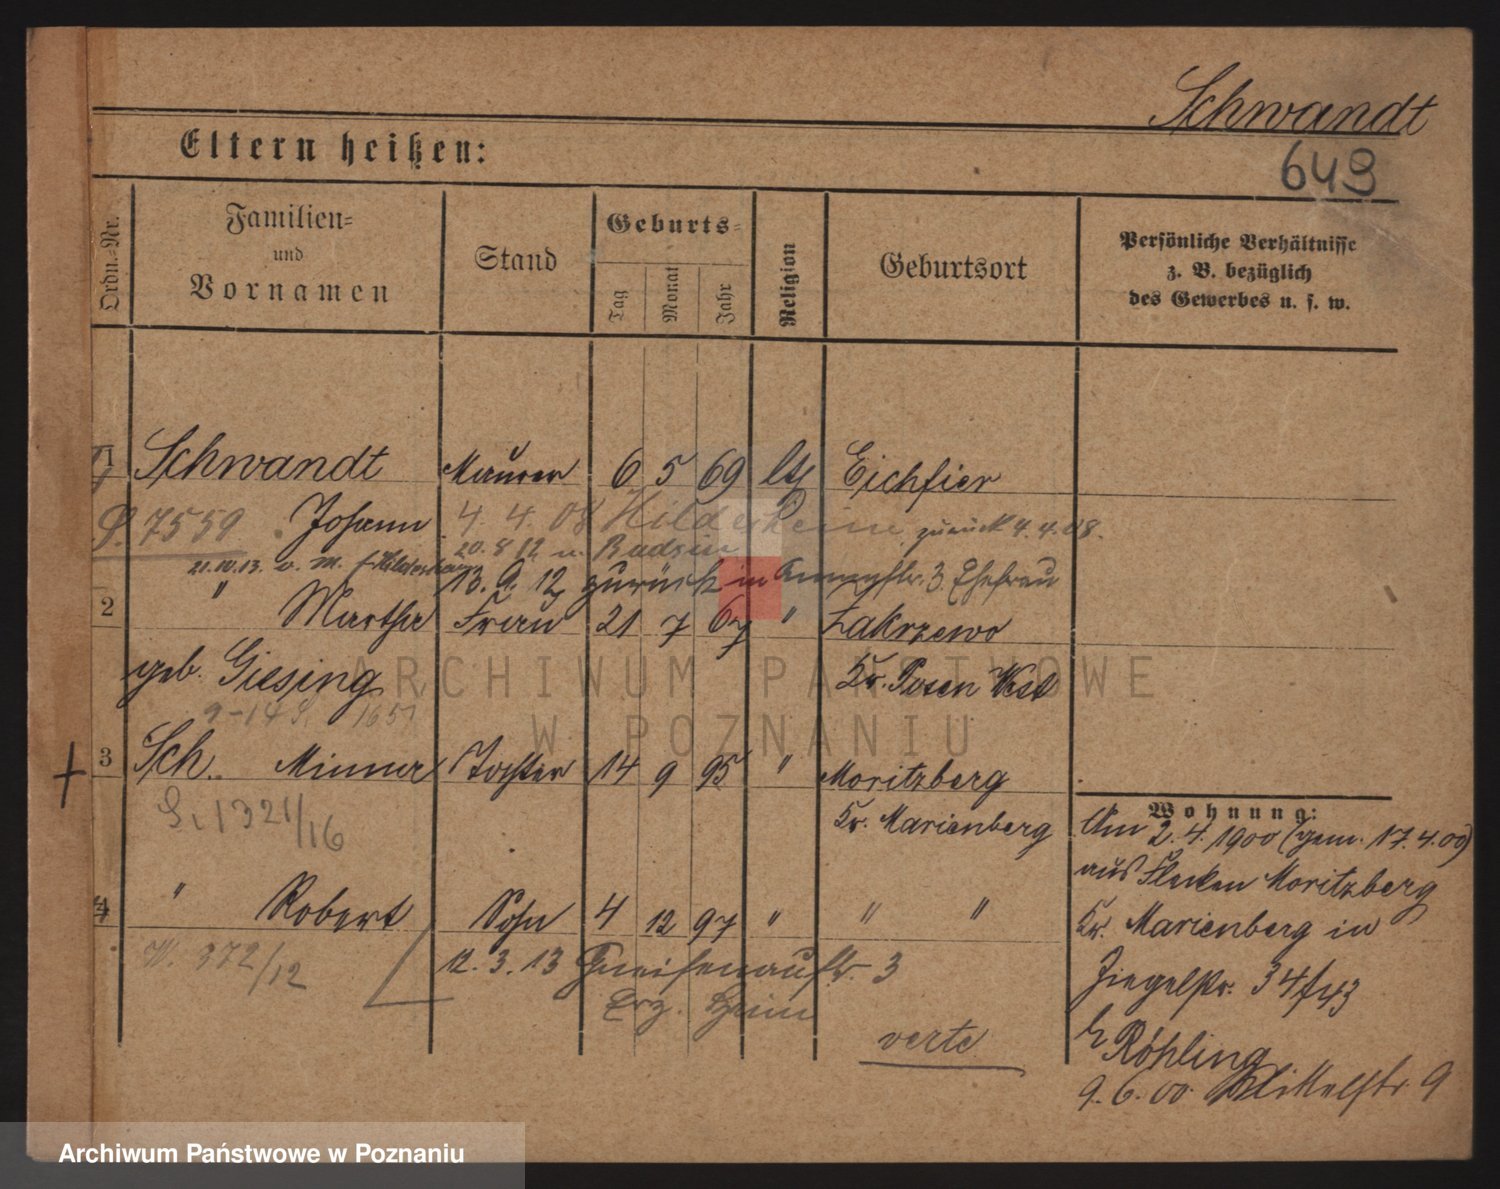 Schwandt
649
Eltern heißen:
Ordn.-Nr.
Familien=
und
Vornamen
Stand
Geburts=
Tag
Monat
Jahr
Religion
Geburtsort
Persönliche Verhältnisse
z. B. bezüglich
des Gewerbes u. s. w.
1 Schwandt Maurer 6 5 69 Eichfier
7559 Johann 4. 4. 08 Hildesheim zurück 4. 4. 08.
20. 8 12 n. Radzin
21.10.13. v. M. f. Hildesheim 13. 9. 12 zurück in 3 Ehefrau
2 " Martha Frau 21 7 67 " Zakrzewo
geb. Giesing Kr. Posen West
9-14 1651
3 Sch. Minna Tochter 14 9 95 " Moritzberg
1321/16 Kr. Marienberg
Wohnung:
Am 2. 4. 1900 (gem. 17. 4. 00)
aus Flecken Moritzberg
4 " Robert Sohn 4 12 97 " " "
Kr. Marienberg in
W. 372/12 12. 3. 13 Gneisenaustr. 3
Ziegelstr. 3
verte
b Röhling
9. 6. 00. 9
ARCHIWUM PAŃSTWOWE
W POZNANIU
Archiwum Państwowe w Poznaniu